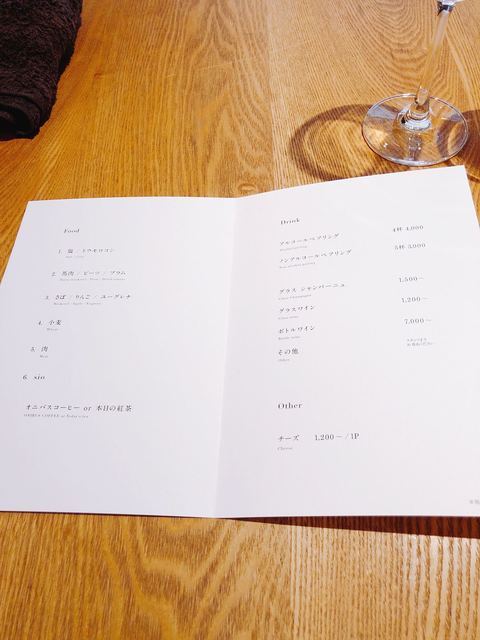 Food
1. 塩 / トウモロコシ
2. 馬肉 / ビーツ / プラム
3. さば / りんご / ユーグレナ
4. 小麦
5. 肉
Meat
6. sio
オニバスコーヒー or 本日の紅茶
Drink
アルコールペアリング 4杯 4,000
ノンアルコールペアリング 5杯 3,000
グラス シャンパーニュ 1,500～
グラスワイン 1,200～
ボトルワイン 7,000～
その他
Others
Other
チーズ 1,200～/1P
Cheese